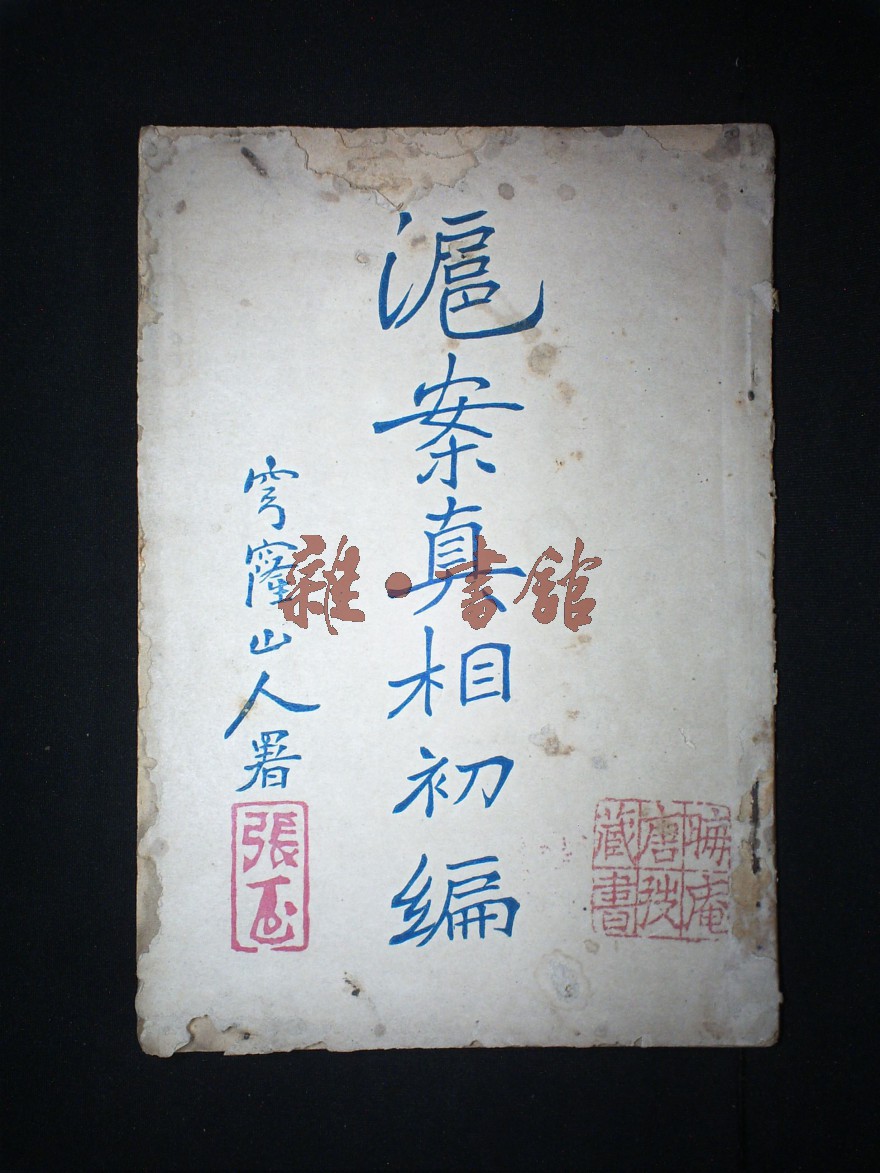 滬案真相初編
穹窿山人署
張
唐
藏書
雜·書館